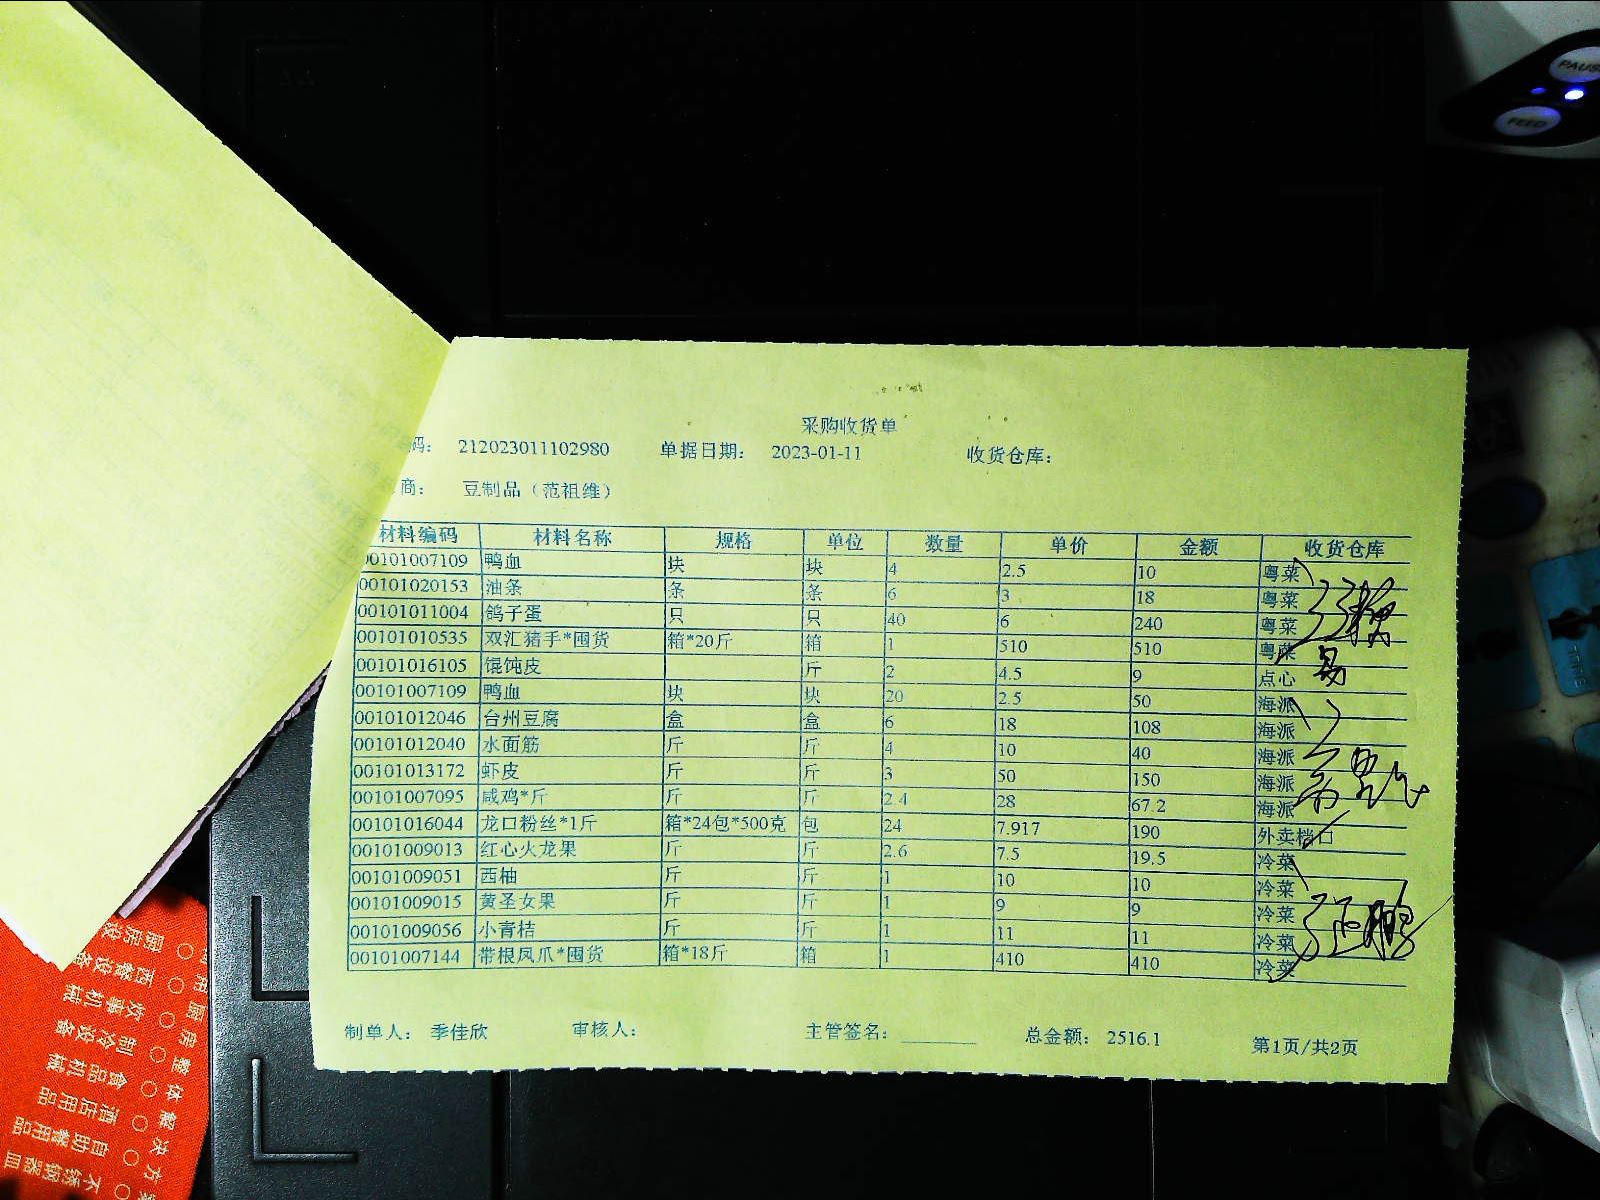 采购收货单
码： 212023011102980 单据日期： 2023-01-11 收货仓库：
商： 豆制品（范祖维）
材料编码 材料名称 规格 单位 数量 单价 金额 收货仓库
00101007109 鸭血 块 块 4 2.5 10 粤菜
00101020153 油条 条 条 6 3 18 粤菜
00101011004 鸽子蛋 只 只 40 6 240 粤菜
00101010535 双汇猪手*囤货 箱*20斤 箱 1 510 510 粤菜
00101016105 馄饨皮 斤 2 4.5 9 点心
00101007109 鸭血 块 块 20 2.5 50 海派
00101012046 台州豆腐 盒 盒 6 18 108 海派
00101012040 水面筋 斤 斤 4 10 40 海派
00101013172 虾皮 斤 斤 3 50 150 海派
00101007095 咸鸡*斤 斤 斤 2.4 28 67.2 海派
00101016044 龙口粉丝*1斤 箱*24包*500克 包 24 7.917 190 外卖档口
00101009013 红心火龙果 斤 斤 2.6 7.5 19.5 冷菜
00101009051 西柚 斤 斤 1 10 10 冷菜
00101009015 黄圣女果 斤 斤 1 9 9 冷菜
00101009056 小青桔 斤 斤 1 11 11 冷菜
00101007144 带根凤爪*囤货 箱*18斤 箱 1 410 410 冷菜
制单人： 季佳欣 审核人： 主管签名： 总金额： 2516.1 第1页/共2页
PAUSE
FEED
厨房设
西餐设备
炊事机械
制冷设备
食品机械
酒店用品
自助餐用品
不锈钢器皿